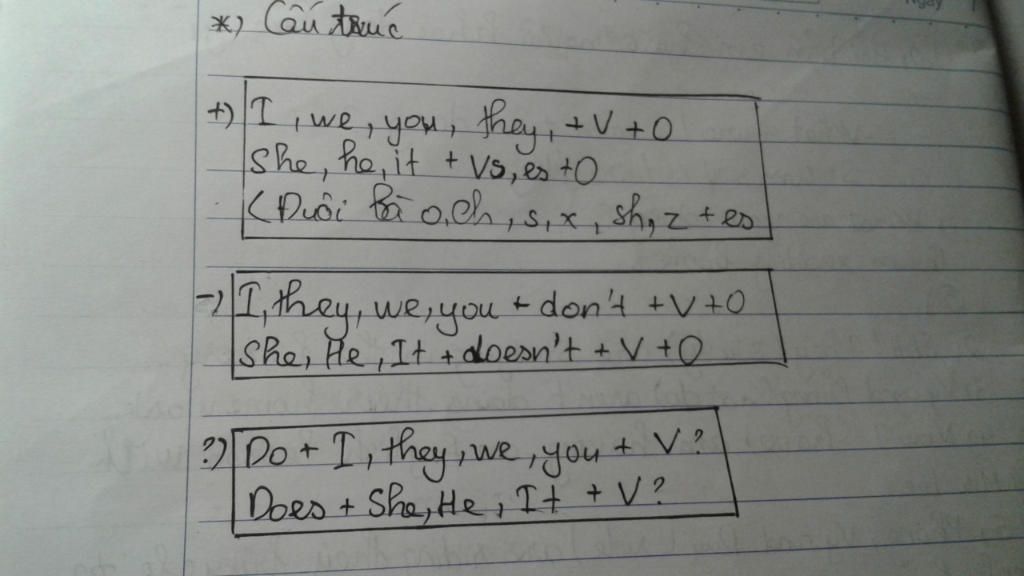 *) Cấu trúc
+) I, we, you, they, + V + O
She, he, it + Vs, es + O
(Đuôi là o, ch, s, x, sh, z + es
-) I, they, we, you + don't + V + O
She, He, It + doesn't + V + O
?) Do + I, they, we, you + V?
Does + She, He, It + V?